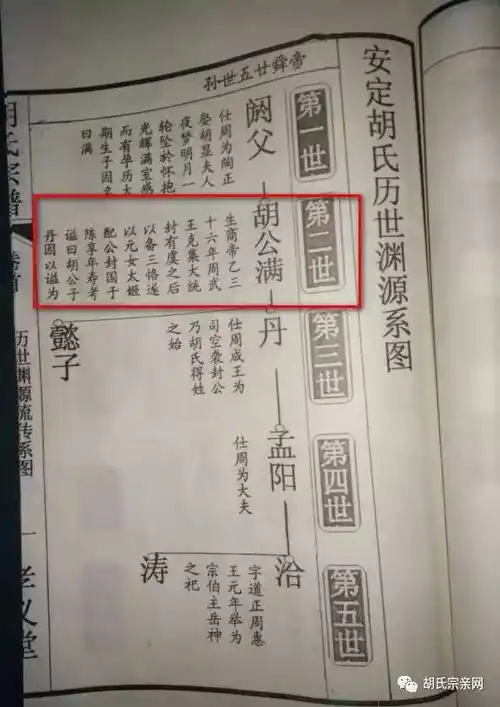 安定胡氏历世渊源系图
帝舜廿五世孙
第一世
阏父
仕周为陶正
娶胡显夫人
夜梦明月一
轮坠於怀抱
光辉满室感
而有孕历大
期生子因名
曰满
第二世
胡公满
生商帝乙三
十六年周武
王克集大统
封有虞之后
以备三恪遂
以元女太姬
配公封国于
陈享年寿考
谥曰胡公子
丹因以谥为
第三世
丹
仕周成王为
司空袭封公
乃胡氏得姓
之始
懿子
第四世
孟阳
仕周为大夫
第五世
洽
字道正周惠
王元年举为
宗伯主岳神
之祀
涛
胡氏宗谱
卷首
历世渊源流传系图
一
孝义堂
胡氏宗亲网